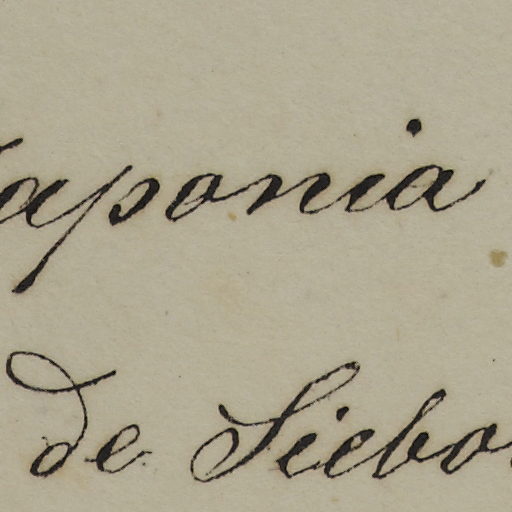 aponia
de Siebo